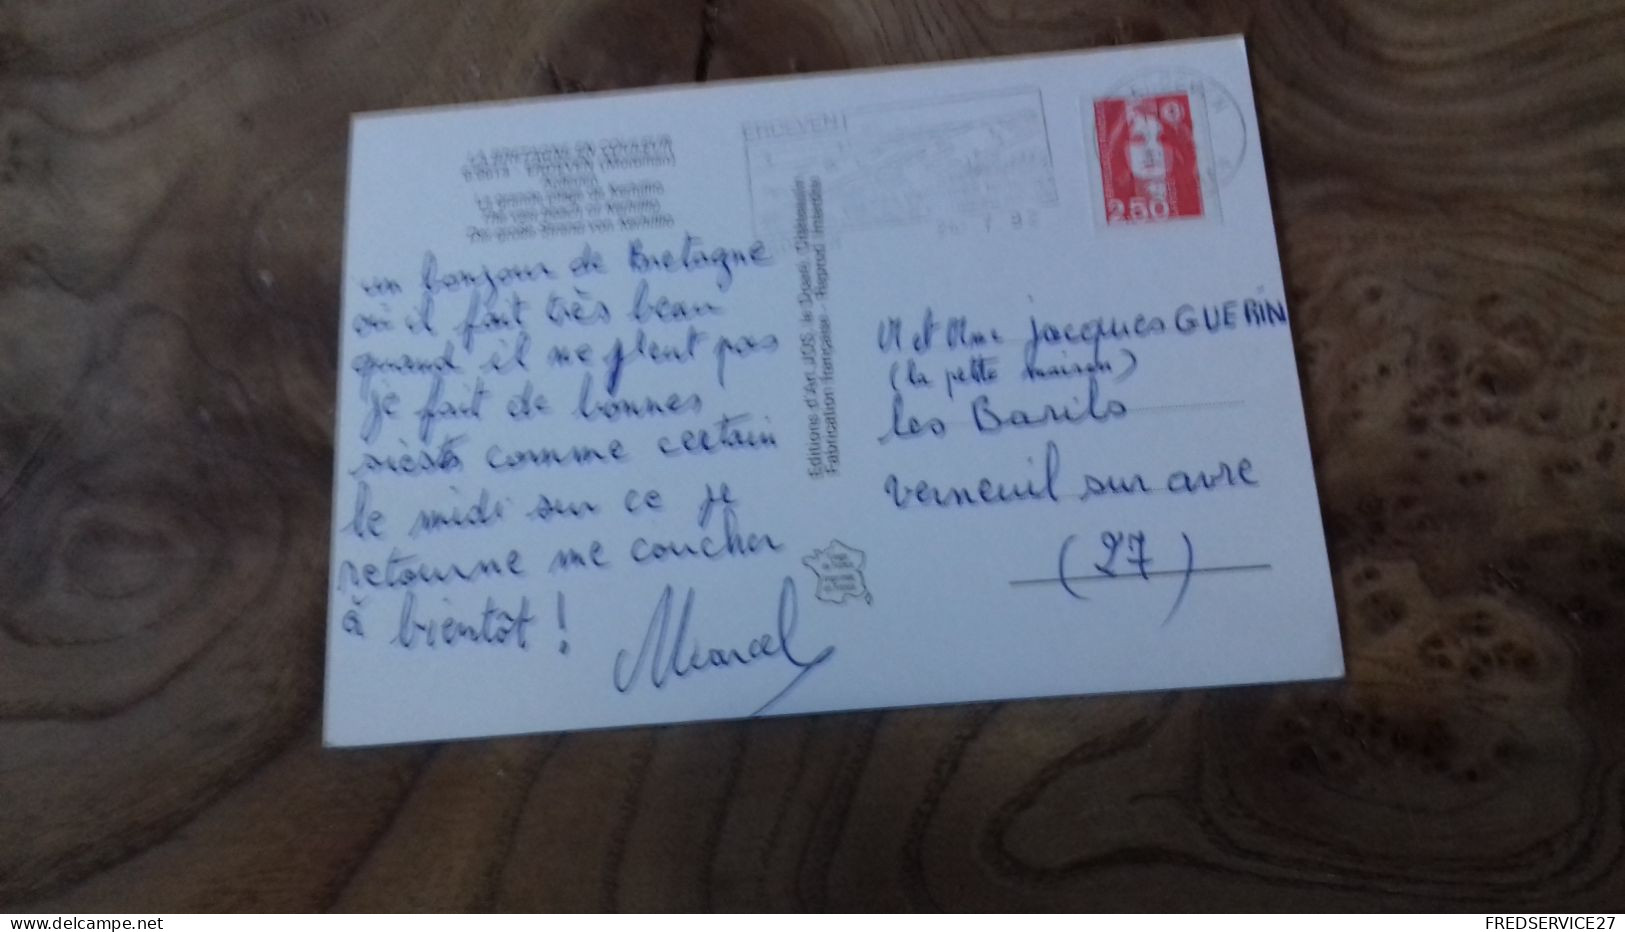 LA BRETAGNE EN COULEUR
ERDEVEN (Morbihan)
La grande plage de Kerhillio
The very beach of Kerhillio
Der große Strand von Kerhillio
un bonjour de Bretagne
où il fait très beau
quand il ne pleut pas
je fait de bonnes
siestes comme certain
le midi sur ce je
retourne me coucher
à bientôt !
Marcel
Editions d'Art JOS le Doaré, Chateaulin
Fabrication française - Reprod. interdite
ERDEVEN
7 92
2,50
M et Mme jacques GUERIN
(la petite maison)
les Barils
verneuil sur avre
(27)
www.delcampe.net
FREDSERVICE27